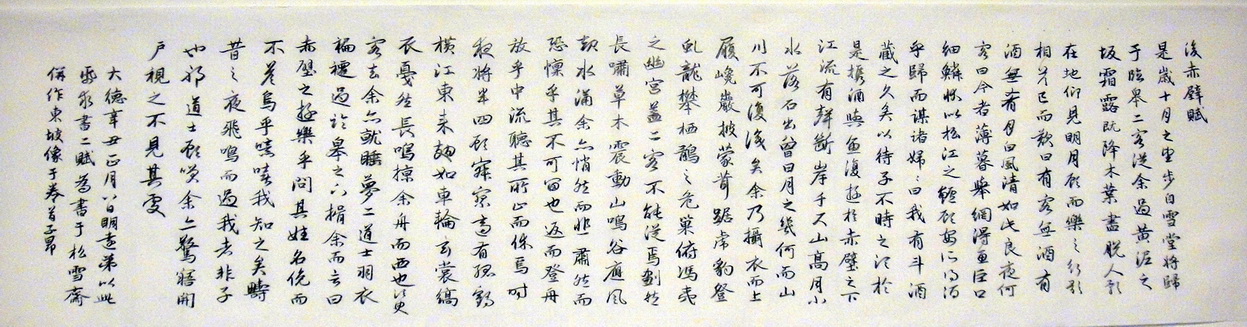 後赤壁賦
是歲十月之望步自雪堂將歸
于臨皋二客從余過黃泥之
坂霜露既降木葉盡脫人影
在地仰見明月顧而樂之行歌
相答已而歎曰有客無酒有
酒無肴月白風清如此良夜何
客曰今者薄暮舉網得魚巨口
細鱗狀似松江之鱸顧安所得酒
乎歸而謀諸婦婦曰我有斗酒
藏之久矣以待子不時之須於
是攜酒與魚復遊於赤壁之下
江流有聲斷岸千尺山高月小
水落石出曾日月之幾何而山
川不可復識矣余乃攝衣而上
履巉巖披蒙茸踞虎豹登
虬龍攀栖鶻之危巢俯馮夷
之幽宮蓋二客不能從焉劃然
長嘯草木震動山鳴谷應風
起水涌余亦悄然而悲肅然而
恐懍乎其不可留也返而登舟
放乎中流聽其所止而休焉時
夜將半四顧寂寥適有孤鶴
橫江東來翅如車輪玄裳縞
衣戛然長鳴掠余舟而西也須臾
客去余亦就睡夢二道士羽衣
褊褼過臨皋之下揖余而言曰
赤壁之遊樂乎問其姓名俛而
不答烏乎噫嘻我知之矣疇
昔之夜飛鳴而過我者非子
也耶道士顧笑余亦驚寤開
戶視之不見其處
大德辛丑正月八日明遠弟以此
紙求書二賦為書于松雪齋
併作東坡像于卷首子昂